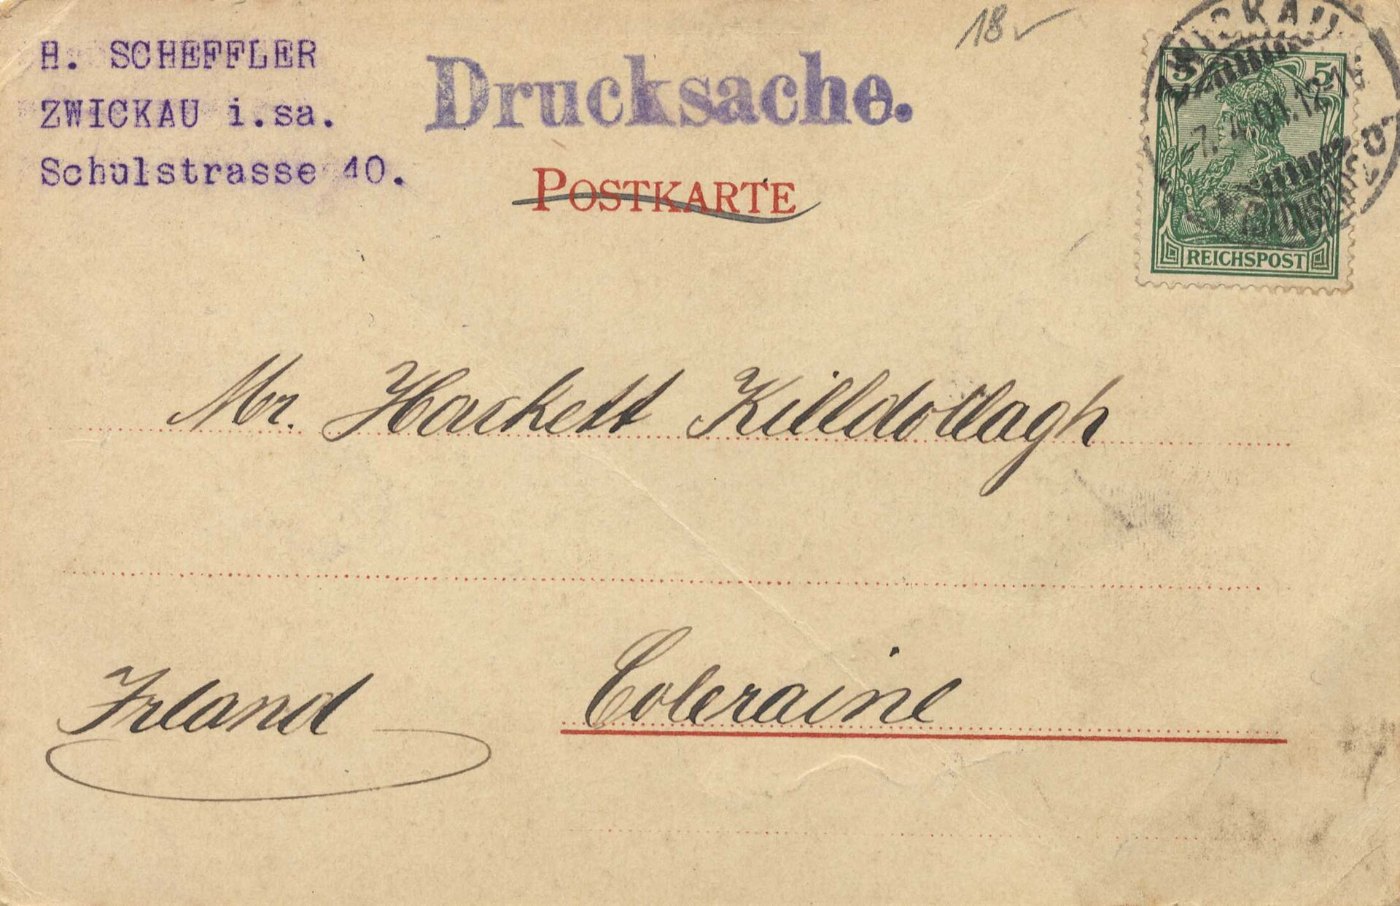 H. SCHEFFLER
ZWICKAU i.sa.
Schulstrasse 40.
Drucksache.
POSTKARTE
18
ZWICKAU
5 5
7. 4.01. 12-1
REICHSPOST
Mr. Hackett Killdollagh
Irland
Coleraine